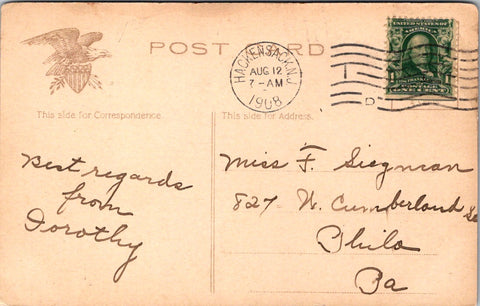 POST CARD
HACKENSACK, N.J.
AUG 12
7-AM
1908
This side for Correspondence.
This side for Address.
Best regards
from
Dorothy
Miss F. Siegman
827 W. Cumberland St
Phila
Pa